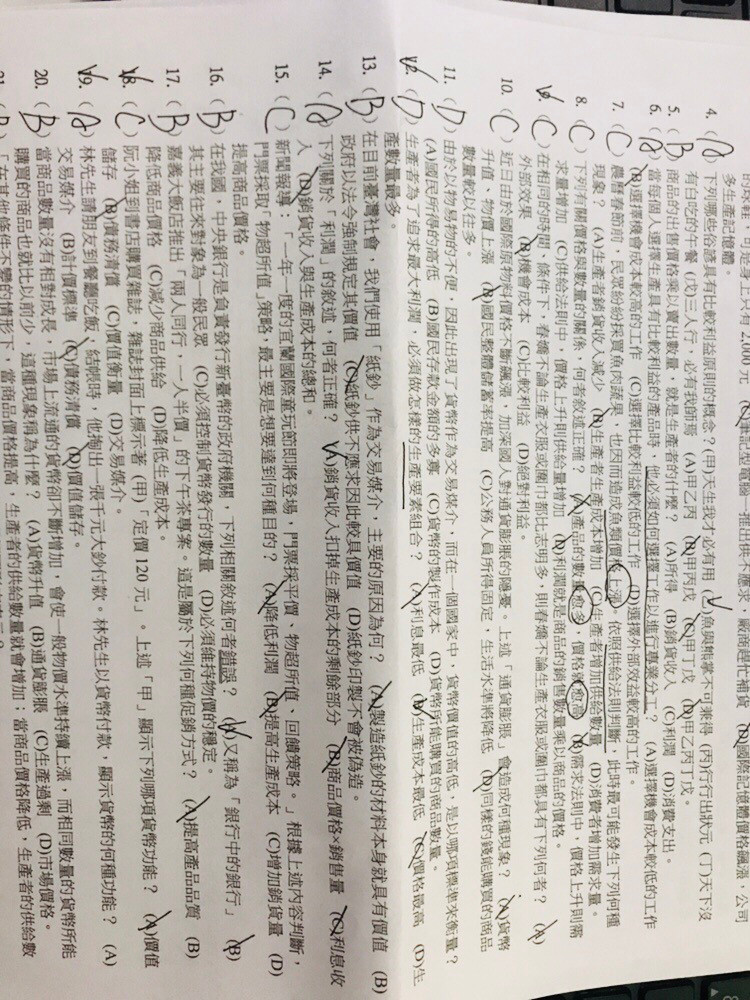 多生產記憶體。
4. (A) 下列哪些俗諺具有比較利益原則的概念？(甲)天生我才必有用 (乙)魚與熊掌不可兼得 (丙)行行出狀元 (丁)天下沒
有白吃的午餐 (戊)三人行，必有我師焉 (A)甲乙丙 (B)甲丙戊 (C)甲丁戊 (D)甲乙丙丁戊。
5. (B) 商品的出售價格乘以賣出數量，就是生產者的什麼？ (A)所得 (B)銷貨收入 (C)利潤 (D)消費支出。
6. (A) 當每個人選擇生產具有比較利益的產品時，他必須如何選擇工作以進行專業分工？ (A)選擇機會成本較低的工作
(B)選擇機會成本較高的工作 (C)選擇比較利益較低的工作 (D)選擇外部效益較高的工作。
7. (C) 農曆春節前，民眾紛紛採買魚肉蔬果，也因而造成魚類價格上漲，依照供給法則判斷，此時最可能發生下列何種
現象？ (A)生產者銷貨收入減少 (B)生產者生產成本增加 (C)生產者增加供給數量 (D)消費者增加需求量。
8. (C) 下列有關價格與數量的關係，何者敘述正確？ (A)產品的數量愈多，價格就愈高 (B)需求法則中，價格上升則需
求量增加 (C)供給法則中，價格上升則供給量增加 (D)利潤就是商品的銷售數量乘以商品的價格。
9. (C) 在相同的時間、條件下，春嬌不論生產衣服或圍巾都比志明多，則春嬌不論生產衣服或圍巾都具有下列何者？ (A)
外部效果 (B)機會成本 (C)比較利益 (D)絕對利益。
10. (C) 近日由於國際原物料價格不斷飆漲，加深國人對通貨膨脹的隱憂。上述「通貨膨脹」會造成何種現象？ (A)貨幣
升值、物價上漲 (B)國民整體儲蓄率提高 (C)公務人員所得固定，生活水準將降低 (D)同樣的錢能購買的商品
數量較以往多。
11. (D) 由於以物易物的不便，因此出現了貨幣作為交易媒介，而在一個國家中，貨幣價值的高低，是以哪項標準來衡量？
(A)國民所得的高低 (B)國民存款金額的多寡 (C)貨幣的製作成本 (D)貨幣所能購買的商品數量。
12. (D) 生產者為了追求最大利潤，必須做怎樣的生產要素組合？ (A)利息最低 (B)生產成本最低 (C)價格最高 (D)生
產數量最多。
13. (B) 在目前臺灣社會，我們使用「紙鈔」作為交易媒介，主要的原因為何？ (A)製造紙鈔的材料本身就具有價值 (B)
政府以法令強制規定其價值 (C)紙鈔供不應求因此較具價值 (D)紙鈔印製不會被偽造。
14. (A) 下列關於「利潤」的敘述，何者正確？ (A)銷貨收入扣掉生產成本的剩餘部分 (B)商品價格×銷售量 (C)利息收
入 (D)銷貨收入與生產成本的總和。
15. (C) 新聞報導：「一年一度的宜蘭國際童玩節即將登場，門票採平價、物超所值、回饋策略。」根據上述內容判斷，
門票採取「物超所值」策略，最主要是想要達到何種目的？ (A)降低利潤 (B)提高生產成本 (C)增加銷貨量 (D)
提高商品價格。
16. (B) 在我國，中央銀行是負責發行新臺幣的政府機關，下列相關敘述何者錯誤？ (A)又稱為「銀行中的銀行」 (B)
其主要往來對象為一般民眾 (C)必須控制貨幣發行的數量 (D)必須維持物價的穩定。
17. (B) 嘉義大飯店推出「兩人同行，一人半價」的下午茶專案。這是屬於下列何種促銷方式？ (A)提高產品品質 (B)
降低商品價格 (C)減少商品供給 (D)降低生產成本。
18. (C) 阮小姐到書店購買雜誌，雜誌封面上標示著 (甲)「定價 120 元」。上述「甲」顯示下列哪項貨幣功能？ (A)價值
儲存 (B)債務清償 (C)價值衡量 (D)交易媒介。
19. (A) 林先生請朋友到餐廳吃飯，結帳時，他掏出一張千元大鈔付款。林先生以貨幣付款，顯示貨幣的何種功能？ (A)
交易媒介 (B)計價標準 (C)債務清償 (D)價值儲存。
20. (B) 當商品數量沒有相對成長，市場上流通的貨幣卻不斷增加，會使一般物價水準持續上漲，而相同數量的貨幣所能
購買的商品也就比以前少，這種現象稱為什麼？ (A)貨幣升值 (B)通貨膨脹 (C)生產過剩 (D)市場價格。
「在其他條件不變的情形下，當商品價格提高，生產者的供給數量就會增加；當商品價格降低，生產者的供給數